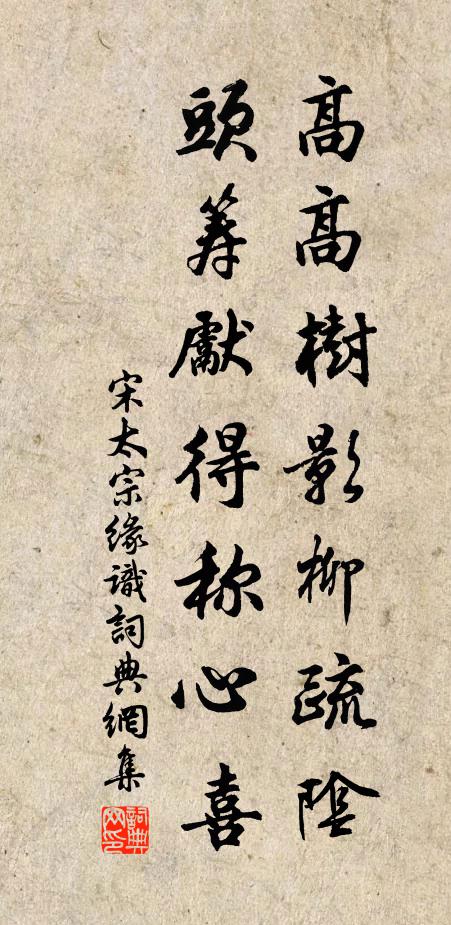 高高樹影柳疏陰
頭筹獻得称心喜
宋太宗緣識詞典網集
詞典网印